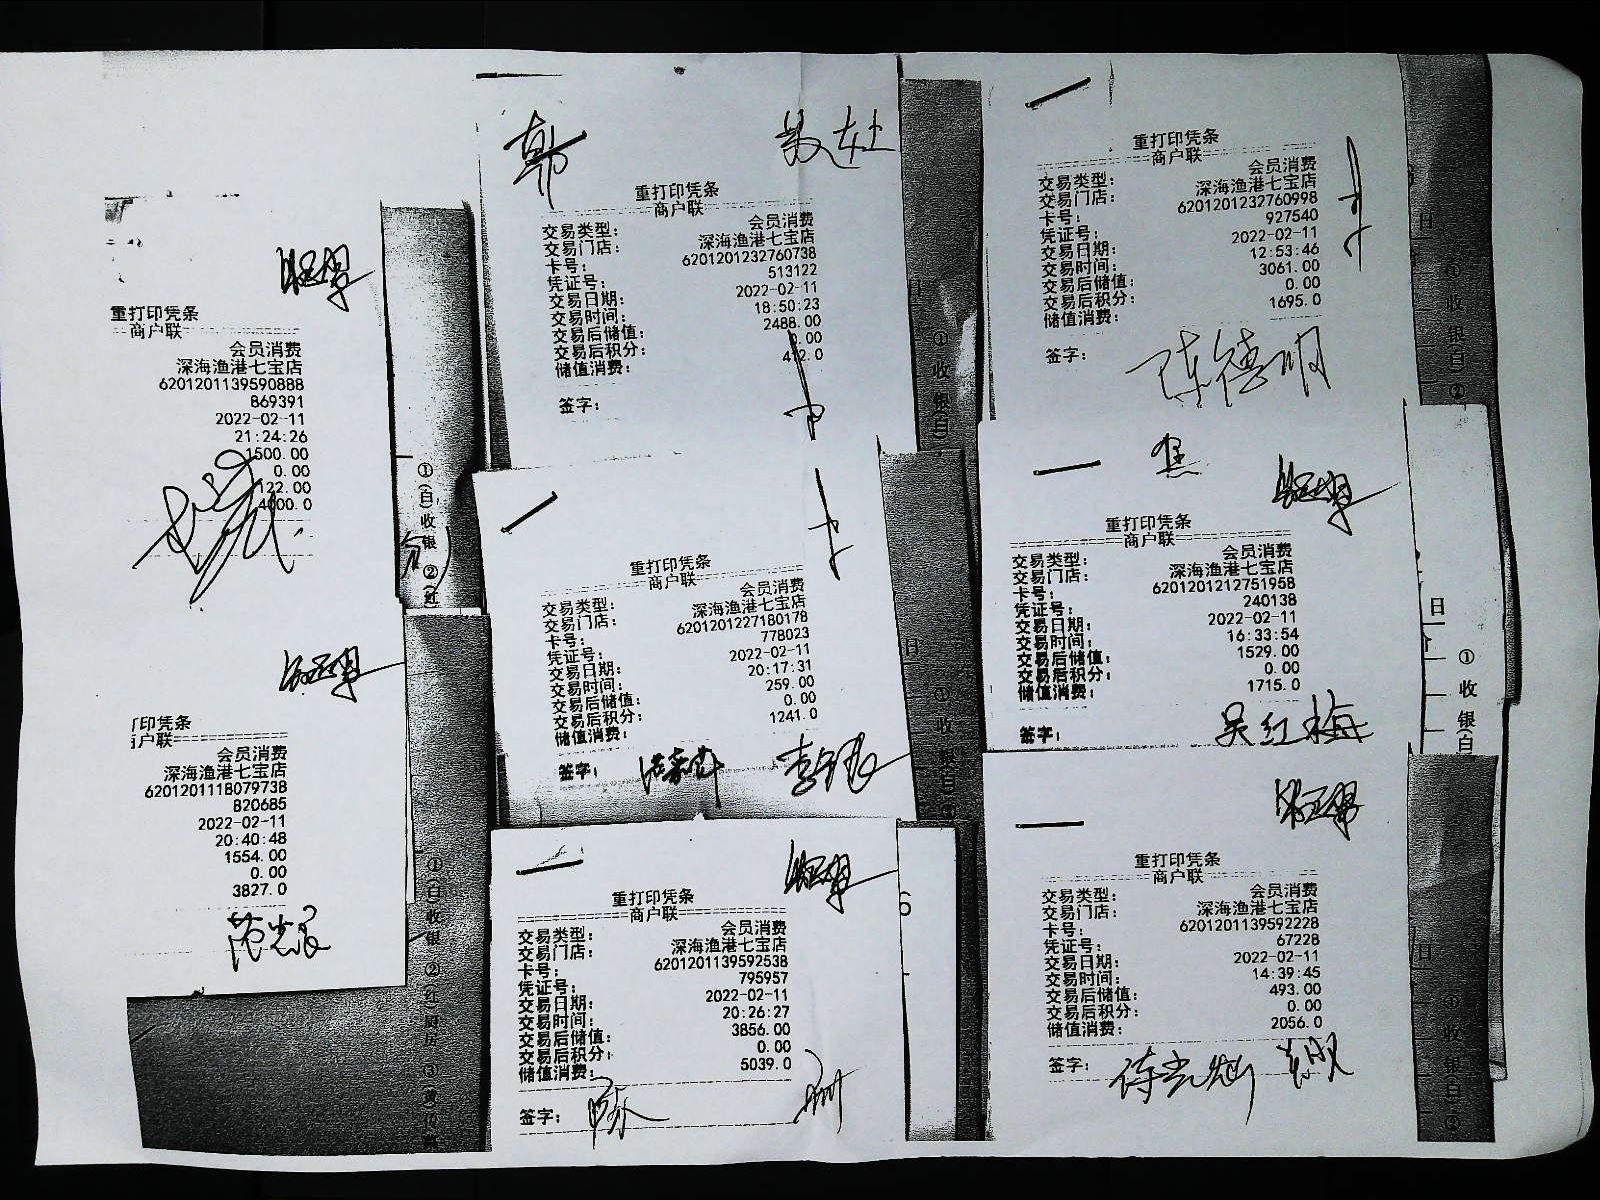 重打印凭条
商户联
会员消费
深海渔港七宝店
6201201139590888
869391
2022-02-11
21:24:26
1500.00
0.00
122.00
4000.0
印凭条
户联
会员消费
深海渔港七宝店
6201201118079738
820685
2022-02-11
20:40:48
1554.00
0.00
3827.0
①(白)收银 ②(红
①(白)收银 ②(红)厨房 ③
韩
重打印凭条
商户联
交易类型: 会员消费
交易门店: 深海渔港七宝店
卡号: 6201201232760738
凭证号: 513122
交易日期: 2022-02-11
交易时间: 18:50:23
交易后储值: 2488.00
交易后积分: 0.00
储值消费: 412.0
签字:
重打印凭条
商户联
交易类型: 会员消费
交易门店: 深海渔港七宝店
卡号: 6201201227180178
凭证号: 778023
交易日期: 2022-02-11
交易时间: 20:17:31
交易后储值: 259.00
交易后积分: 0.00
储值消费: 1241.0
签字:
重打印凭条
商户联
交易类型: 会员消费
交易门店: 深海渔港七宝店
卡号: 6201201139592538
凭证号: 795957
交易日期: 2022-02-11
交易时间: 20:26:27
交易后储值: 3856.00
交易后积分: 0.00
储值消费: 5039.0
签字:
日
① 收 银(白)
日
① 收 银(白) ②
6
重打印凭条
商户联
交易类型: 会员消费
交易门店: 深海渔港七宝店
卡号: 6201201232760998
凭证号: 927540
交易日期: 2022-02-11
交易时间: 12:53:46
交易后储值: 3061.00
交易后积分: 0.00
储值消费: 1695.0
签字: 陈德明
重打印凭条
商户联
交易类型: 会员消费
交易门店: 深海渔港七宝店
卡号: 6201201212751958
凭证号: 240138
交易日期: 2022-02-11
交易时间: 16:33:54
交易后储值: 1529.00
交易后积分: 0.00
储值消费: 1715.0
签字: 吴红梅
重打印凭条
商户联
交易类型: 会员消费
交易门店: 深海渔港七宝店
卡号: 6201201139592228
凭证号: 67228
交易日期: 2022-02-11
交易时间: 14:39:45
交易后储值: 493.00
交易后积分: 0.00
储值消费: 2056.0
签字:
日
① 收 银(白) ②
日
① 收 银(白)
日
① 收 银(白) ②